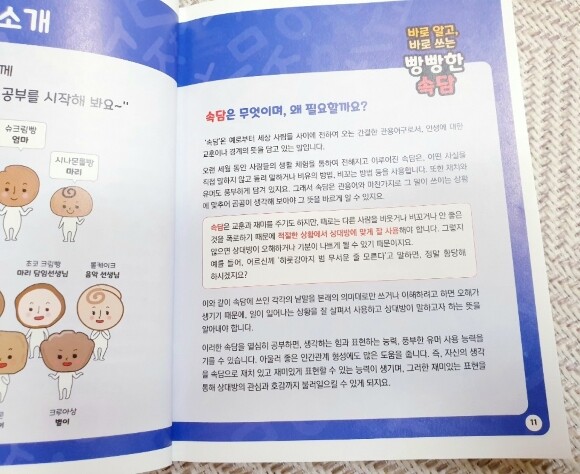 소개
께
공부를 시작해 봐요~"
슈크림빵
엄마
시나몬롤빵
마리
초코 크림빵
마리 담임선생님
롤케이크
음악 선생님
크루아상
별이
바로 알고,
바로 쓰는
빵빵한
속담
속담은 무엇이며, 왜 필요할까요?
'속담'은 예로부터 세상 사람들 사이에 전하여 오는 간결한 관용어구로서, 인생에 대한
교훈이나 경계의 뜻을 담고 있는 말입니다.
오랜 세월 동안 사람들의 생활 체험을 통하여 전해지고 이루어진 속담은, 어떤 사실을
직접 말하지 않고 돌려 말하거나 비유의 방법, 비꼬는 방법 등을 사용합니다. 또한 재치와
유머도 풍부하게 담겨 있지요. 그래서 속담은 관용어와 마찬가지로 그 말이 쓰이는 상황
에 맞추어 곰곰이 생각해 보아야 그 뜻을 바르게 알 수 있지요.
속담은 교훈과 재미를 주기도 하지만, 때로는 다른 사람을 비웃거나 비꼬거나 안 좋은
것을 폭로하기 때문에 적절한 상황에서 상대방에 맞게 잘 사용해야 합니다. 그렇지
않으면 상대방이 오해하거나 기분이 나쁘게 될 수 있기 때문이지요.
예를 들어, 어르신께 '하룻강아지 범 무서운 줄 모른다'고 말하면, 정말 황당해
하시겠지요?
이와 같이 속담에 쓰인 각각의 낱말을 본래의 의미대로만 쓰거나 이해하려고 하면 오해가
생기기 때문에, 일이 일어나는 상황을 잘 살펴서 사용하고 상대방이 말하고자 하는 뜻을
알아내야 합니다.
이러한 속담을 열심히 공부하면, 생각하는 힘과 표현하는 능력, 풍부한 유머 사용 능력을
기를 수 있습니다. 아울러 좋은 인간관계 형성에도 많은 도움을 줍니다. 즉, 자신의 생각
을 속담으로 재치 있고 재미있게 표현할 수 있는 능력이 생기며, 그러한 재미있는 표현을
통해 상대방의 관심과 호감까지 불러일으킬 수 있게 되지요.
11